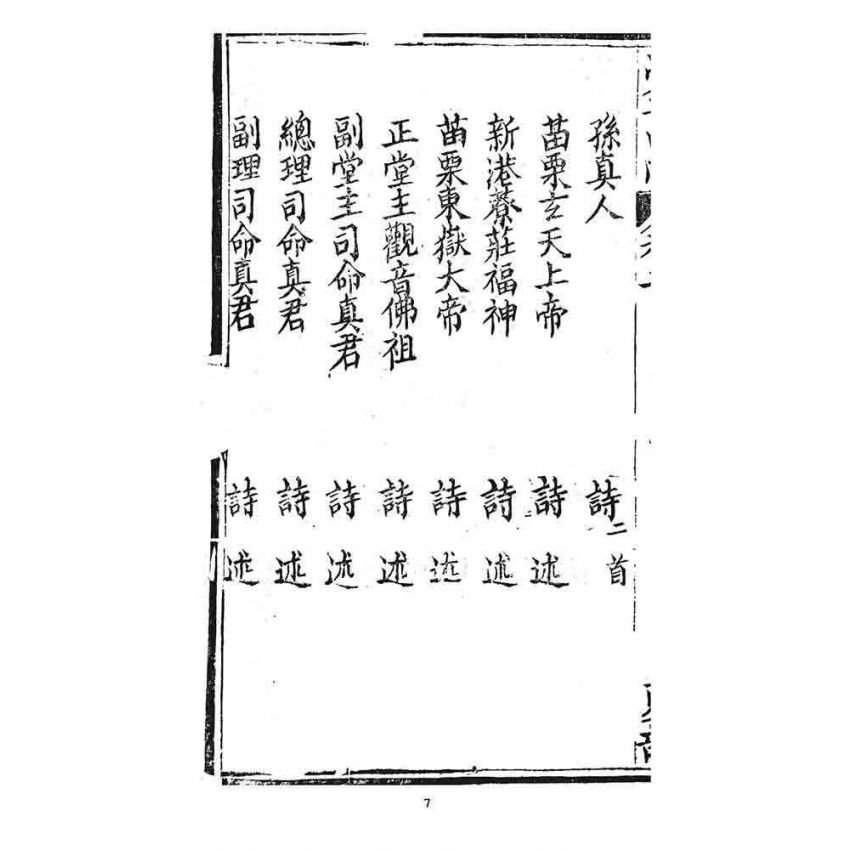 孫真人 詩二首
苗栗玄天上帝 詩述
新港藔莊福神 詩述
苗栗東嶽大帝 詩述
正堂主觀音佛祖 詩述
副堂主司命真君 詩述
總理司命真君 詩述
副理司命真君 詩述
7